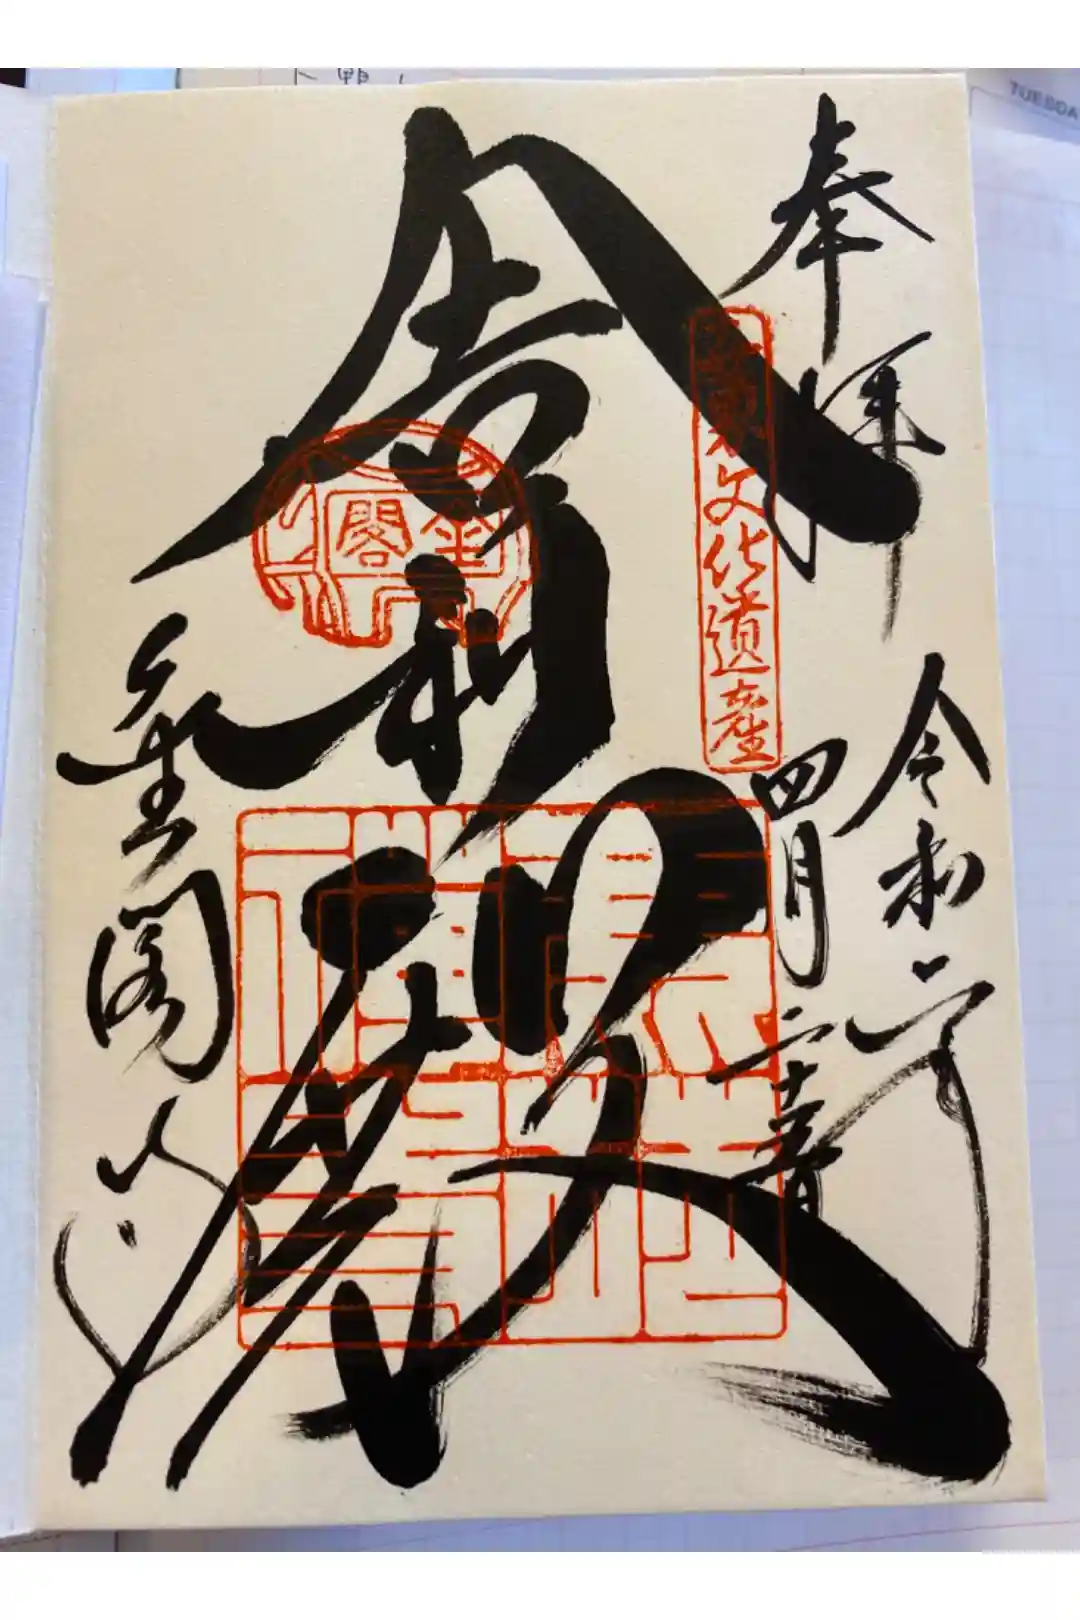 奉拝
令和六年
四月二十
世界文化遺産
舎利殿
金閣
金閣寺
TUESDA